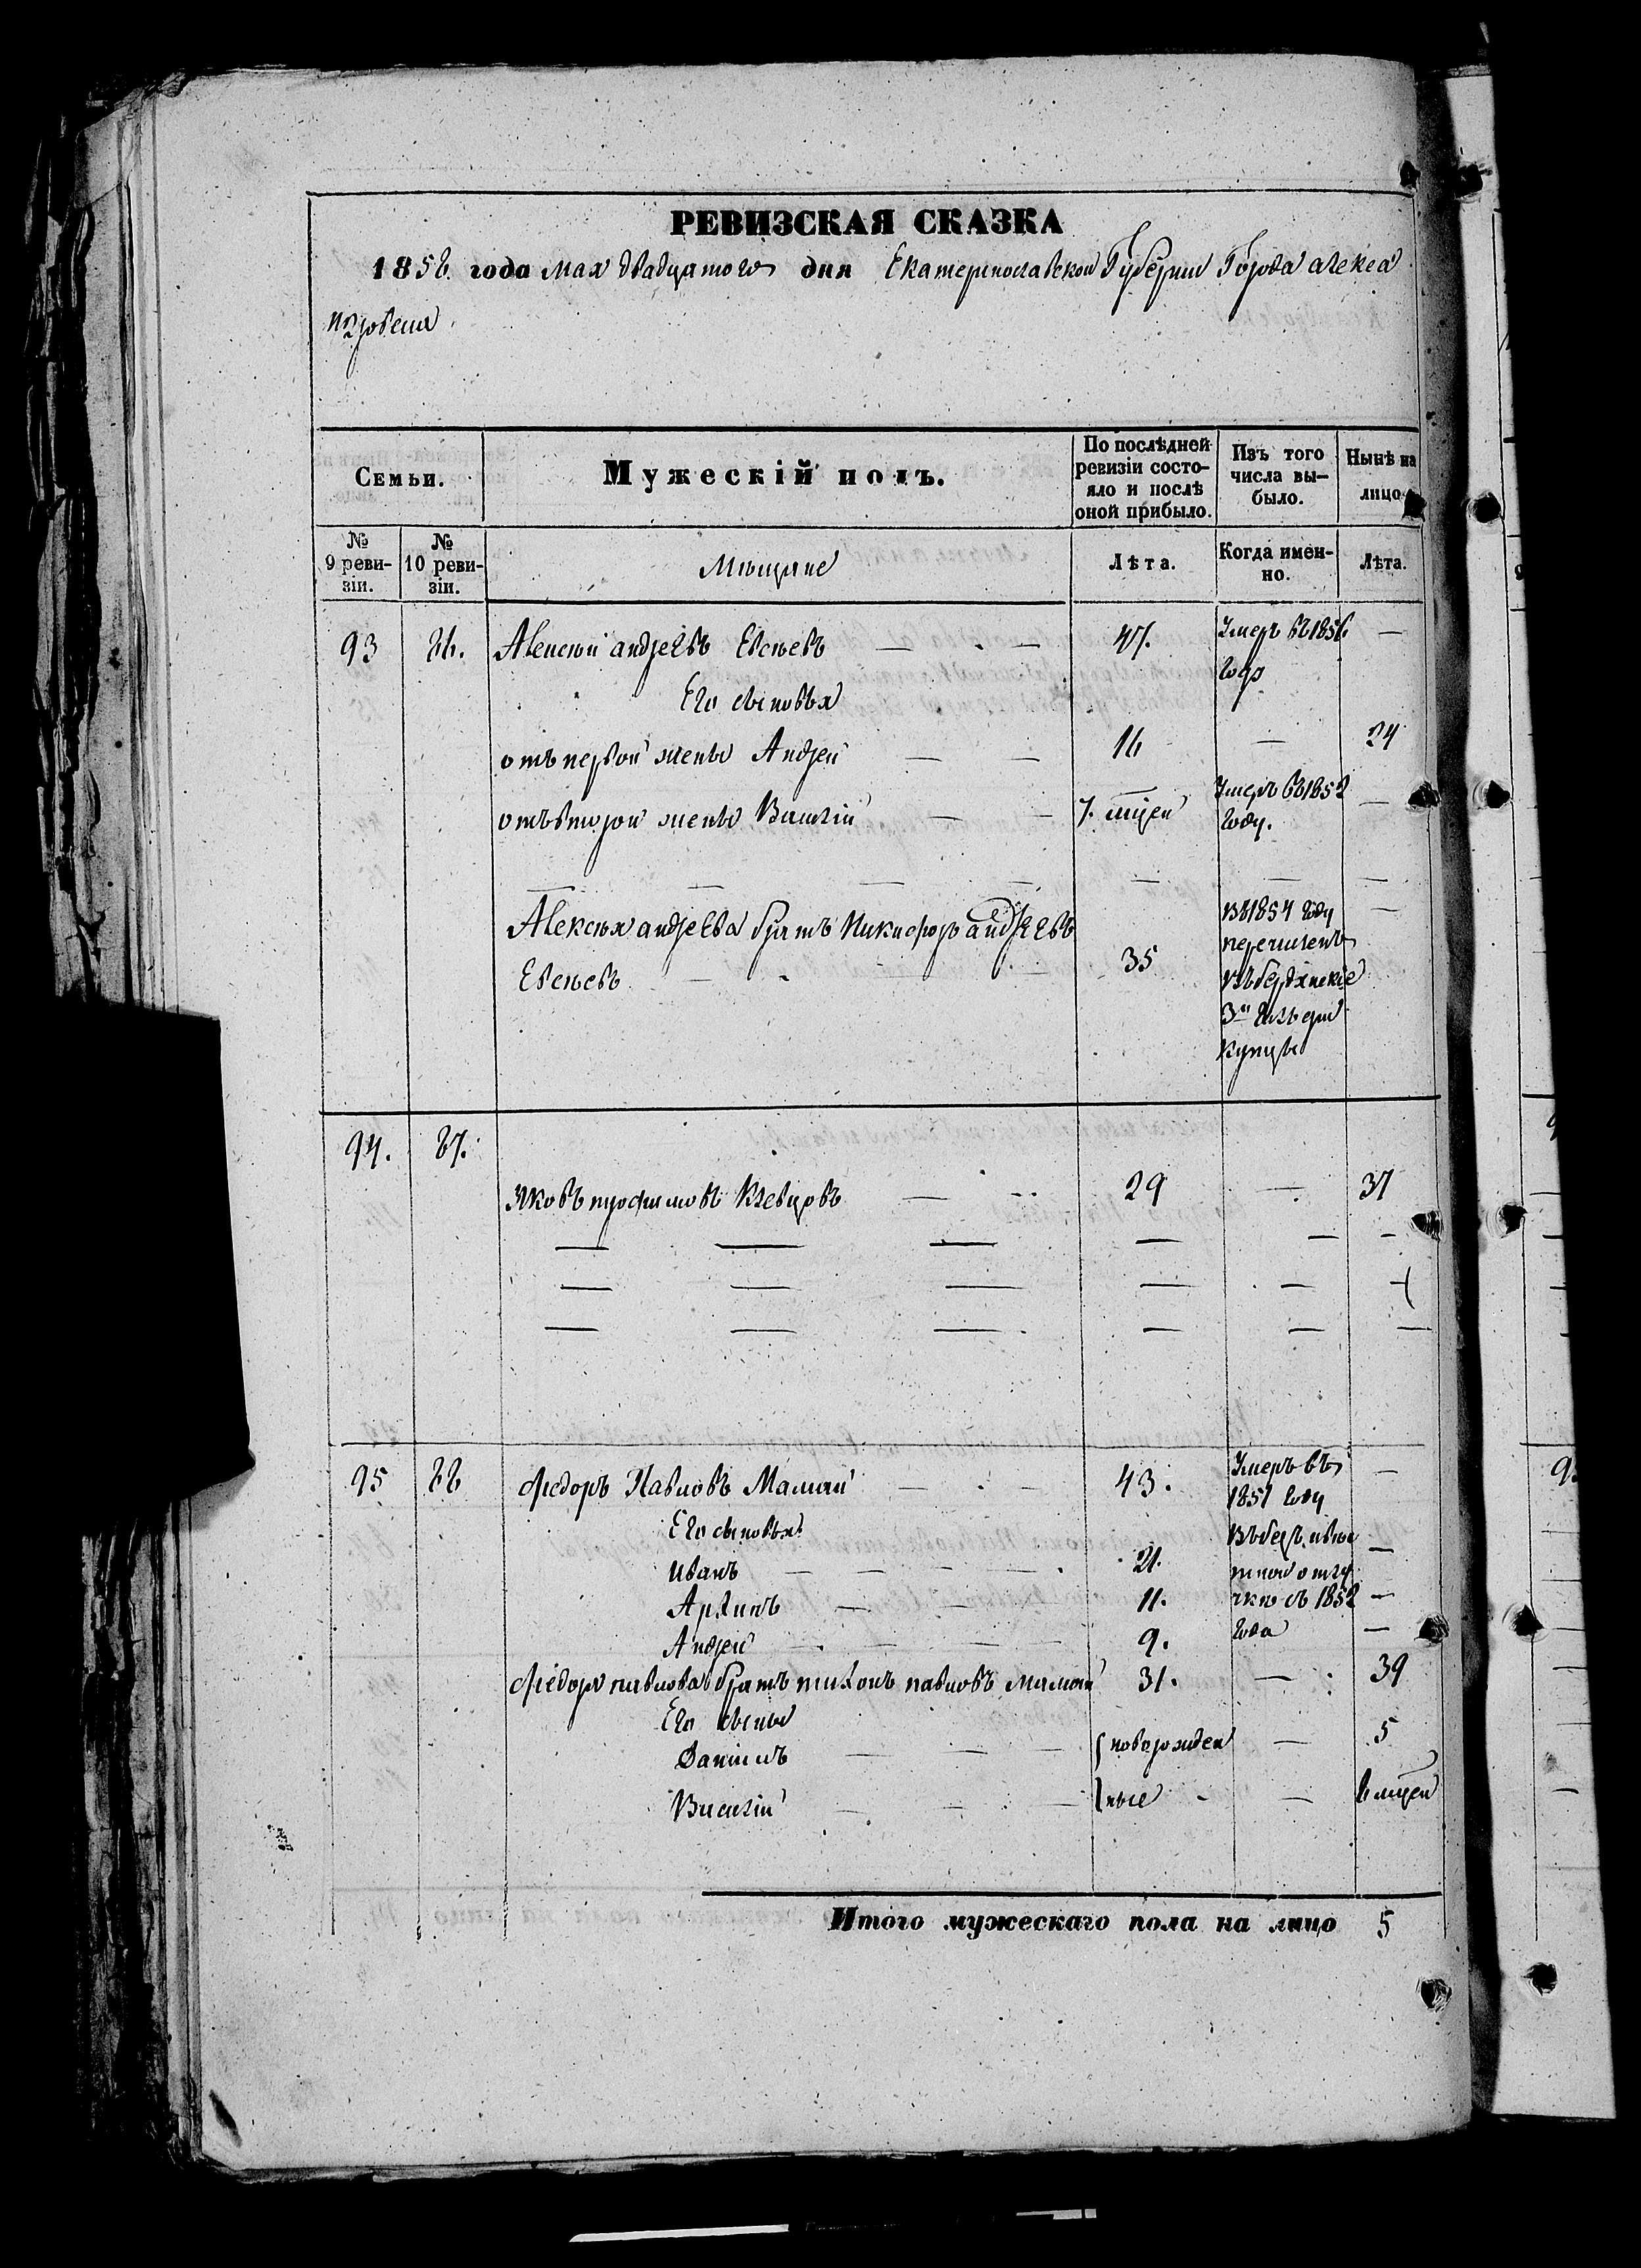 РЕВИЗСКАЯ СКАЗКА
1858 года Мая двадцатого дня Екатеринославской Губернии Города Алекса
ндровска
Семьи.
Мужескій полъ.
По послѣдней ревизіи состояло и послѣ оной прибыло.
Изъ того числа выбыло.
Нынѣ на лицо.
№ 9 ревизіи.
№ 10 ревизіи.
Мѣщане
Лѣта.
Когда именно.
Лѣта.
93 86. Алексѣй Андреевъ Евсѣевъ — — 47. Умеръ въ 1856 году —
Его сыновья
отъ первой жены Андрей — — 16 — 24
отъ второй жены Василій — — 7. мцей Умеръ въ 1852 году. —
Алексѣя Андреева братъ Никифоръ Андреевъ
Евсѣевъ — 35 въ 1854 году перечисленъ въ бердянскіе 3й гильдии купцы —
94. 87.
Яковъ трофимовъ Клевцовъ — 29 — 37
95 88 Федоръ Павловъ Мамай — — 43. Умеръ въ 1851 году —
Его сыновья
Иванъ — — — — 21. въ безъизвѣстной отлучкѣ съ 1852 года —
Архипъ — — — 11. —
Андрей — — — — 9. —
Федора павлова братъ тихонъ павловъ мамай 31. — 39
Его сыны
Даніилъ — — — новорожден — 5
Василій — — — ные — 8 мцей
Итого мужескаго пола на лицо 5